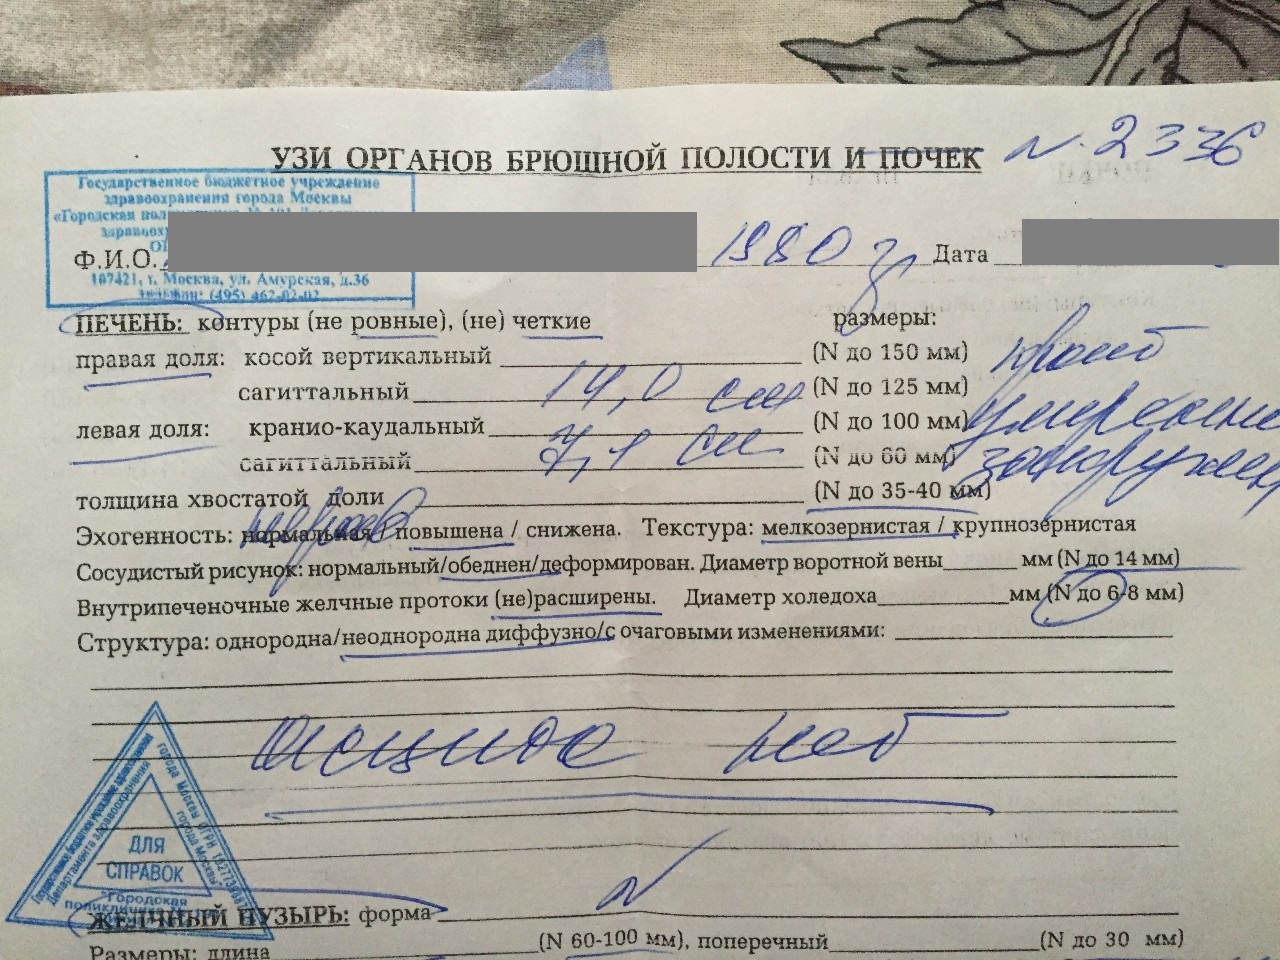 УЗИ ОРГАНОВ БРЮШНОЙ ПОЛОСТИ И ПОЧЕК N 2336
Государственное бюджетное учреждение
здравоохранения города Москвы
«Городская
Ф.И.О. 1980 г Дата
107421, г. Москва, ул. Амурская, д.36
(495) 462-02-02
ПЕЧЕНЬ: контуры (не ровные), (не) четкие размеры:
правая доля: косой вертикальный (N до 150 мм)
сагиттальный 14,0 см (N до 125 мм)
левая доля: кранио-каудальный (N до 100 мм) умеренно
сагиттальный 7,1 см (N до 60 мм)
толщина хвостатой доли (N до 35-40 мм)
Эхогенность: нормальная / повышена / снижена. Текстура: мелкозернистая / крупнозернистая
Сосудистый рисунок: нормальный/обеднен/деформирован. Диаметр воротной вены мм (N до 14 мм)
Внутрипеченочные желчные протоки (не)расширены. Диаметр холедоха мм (N до 6-8 мм)
Структура: однородна/неоднородна диффузно/с очаговыми изменениями:
нет
ДЛЯ
СПРАВОК
"Городская
ЖЕЛЧНЫЙ ПУЗЫРЬ: форма N
Размеры: длина (N 60-100 мм), поперечный (N до 30 мм)